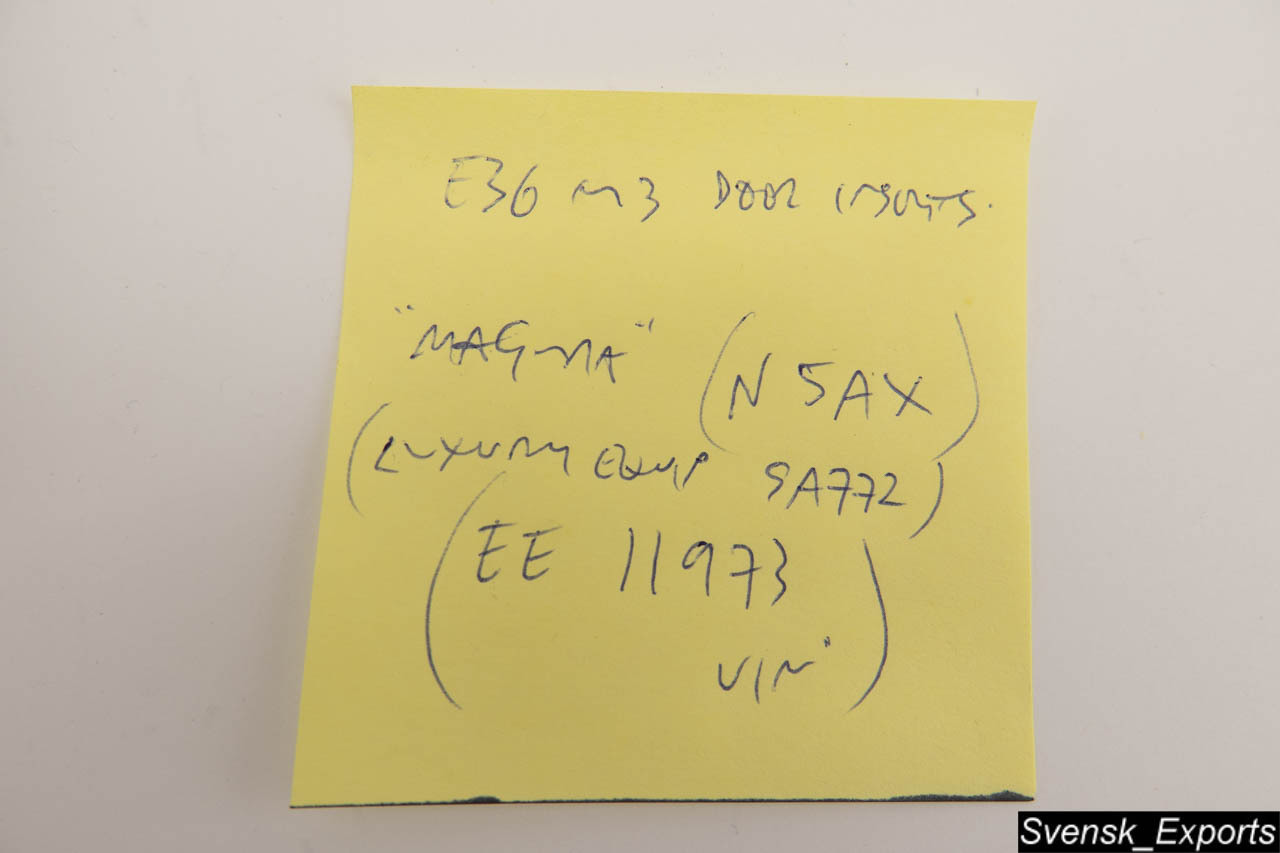 E36 M3 DOOR INSERTS.
"MAGMA" (N5AX)
(LUXURY EQUIP SA772)
(EE 11973
VIN")
Svensk_Exports